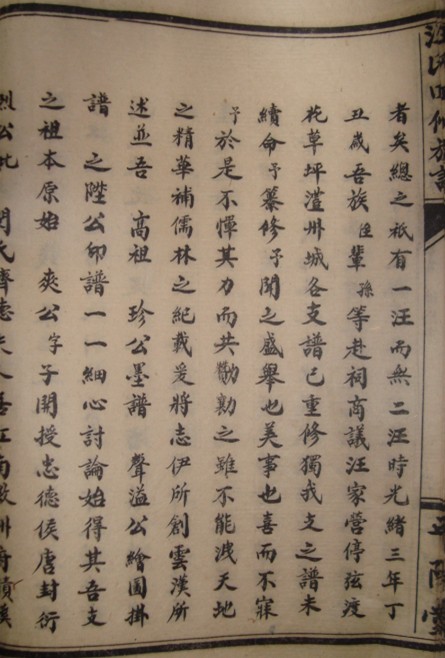 者矣總之祇有一汪而無二汪時光緒三年丁
丑歲吾族侄輩孫等赴祠商議汪家營停弦渡
花草坪澧州城各支譜已重修獨我支之譜未
續命予纂修予聞之盛舉也美事也喜而不寐
予於是不憚其力而共勷勷之雖不能洩天地
之精華補儒林之紀載爰將志伊所創雲漢所
述並吾 高祖 珍公墨譜 聲溢公繪圖掛
譜 之陞公印譜一一細心討論始得其吾支
之祖本原始 爽公字子開授忠德侯唐封衍